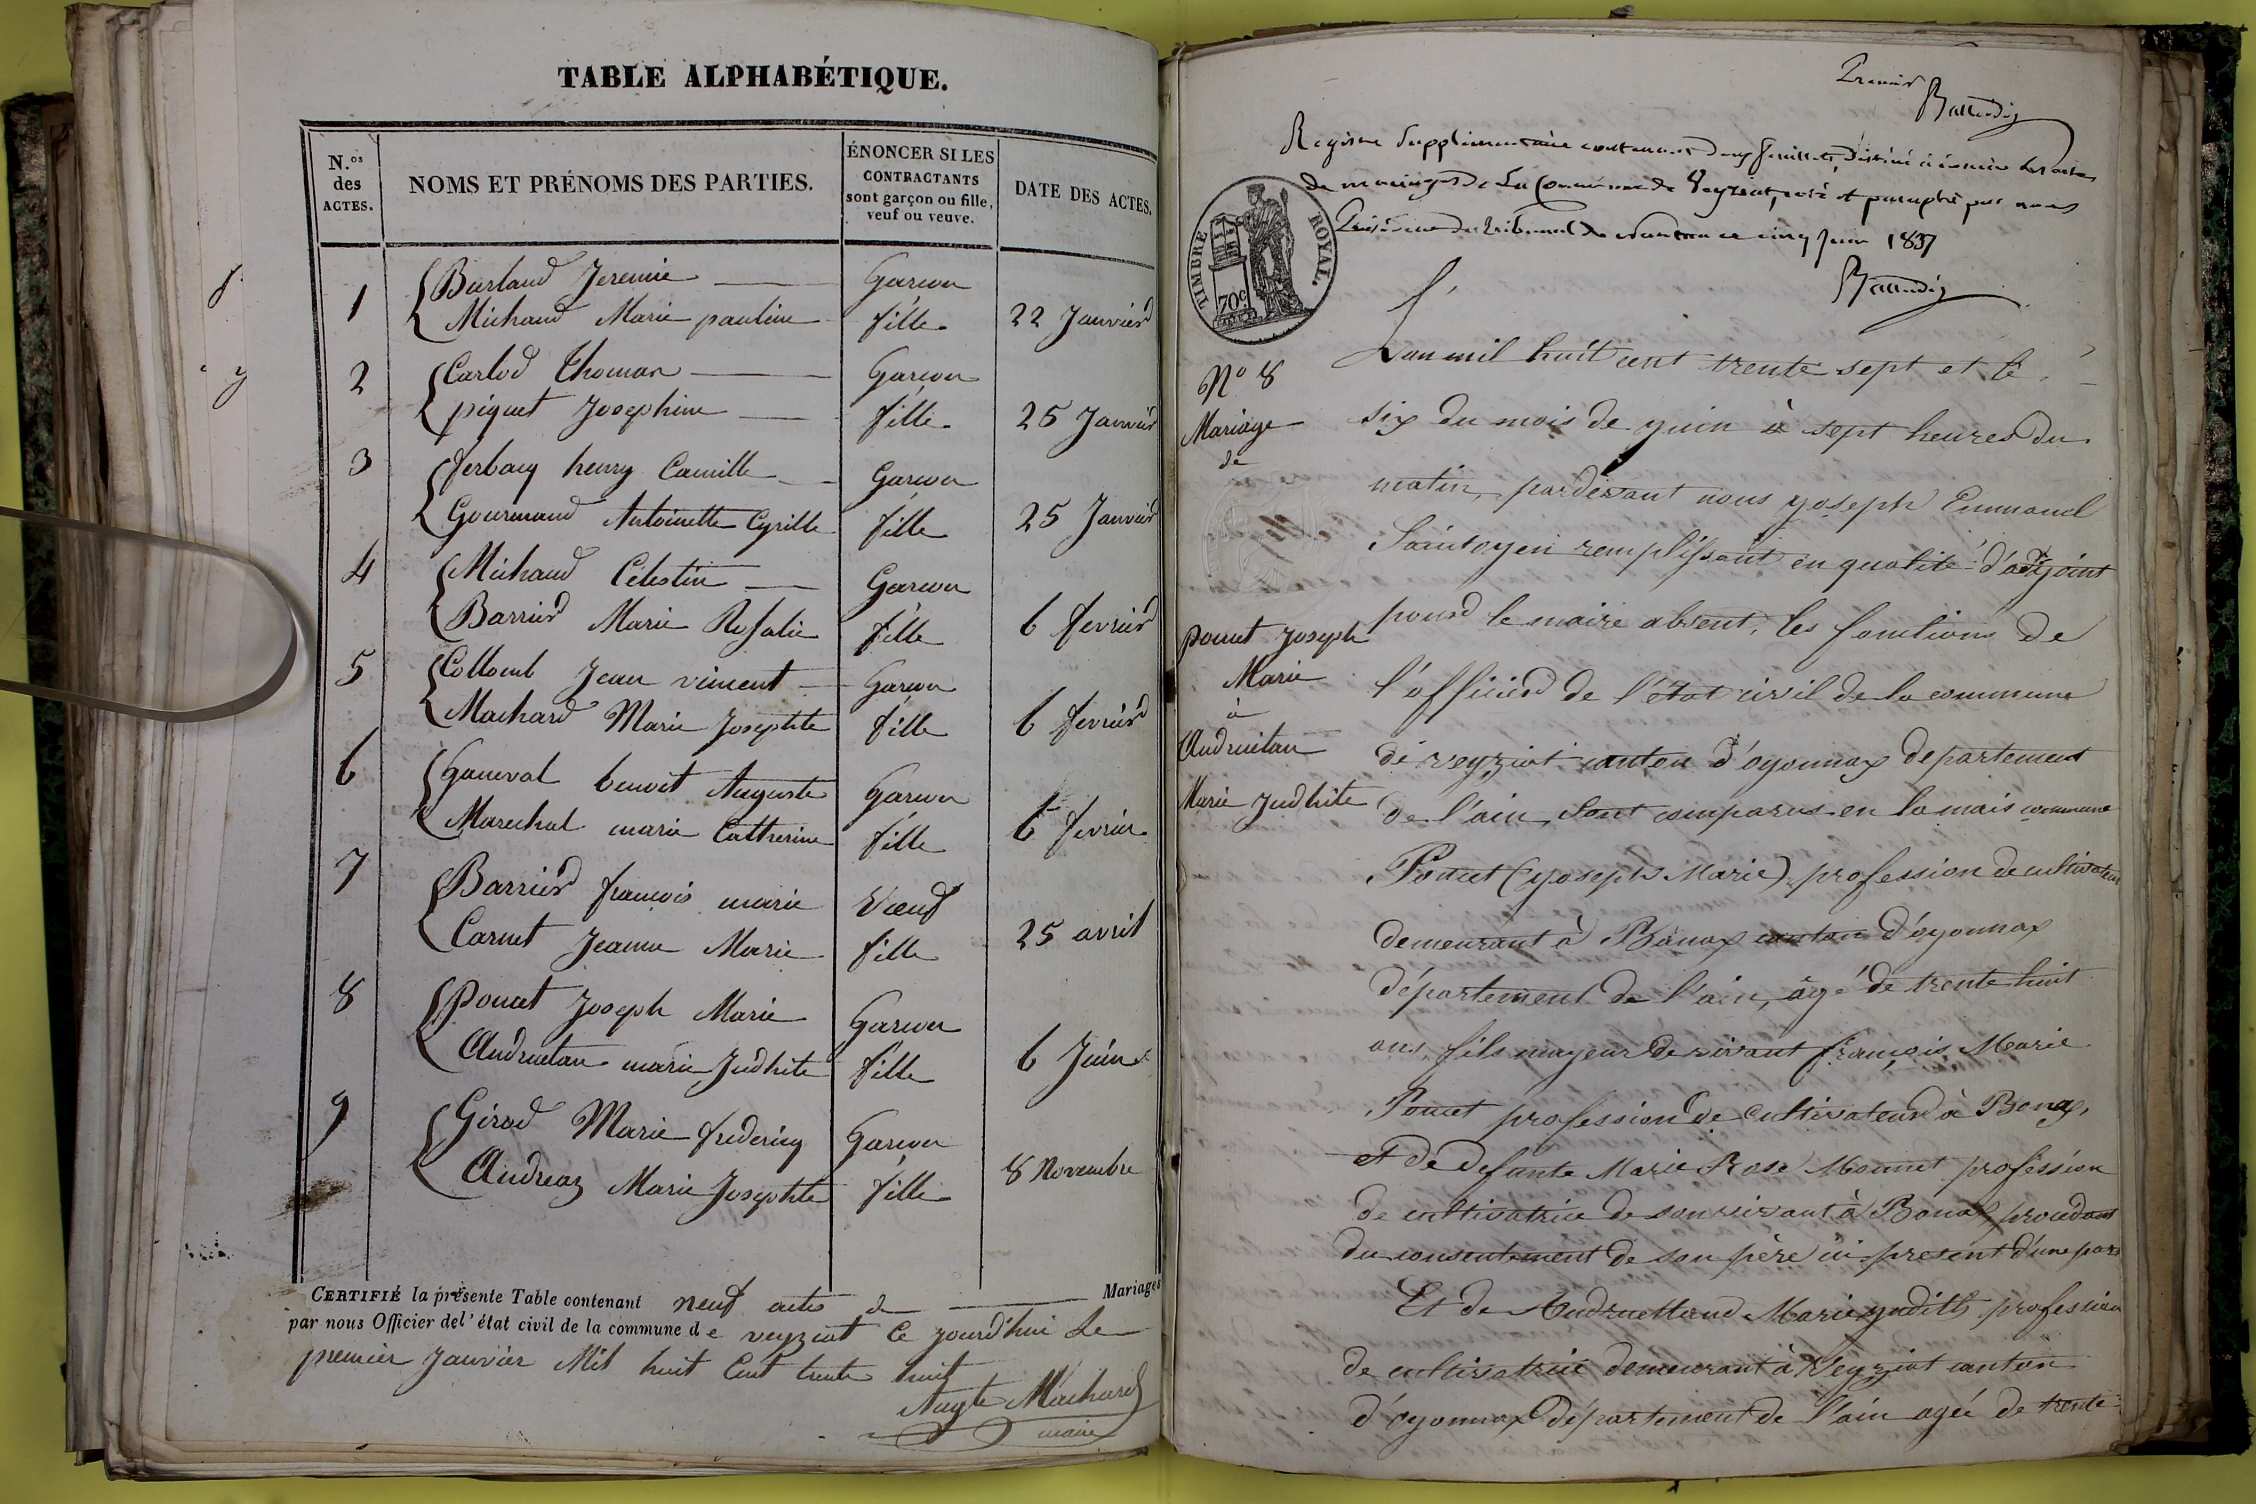 TABLE ALPHABÉTIQUE.
N.os des ACTES.
NOMS ET PRÉNOMS DES PARTIES.
ÉNONCER SI LES
CONTRACTANTS
sont garçon ou fille,
veuf ou veuve.
DATE DES ACTES.
1 Barland Jeremie Garçon
Michaud Marie pauline fille 22 Janvier
2 Carlod Thomas Garçon
piquet Josephine fille 25 Janvier
3 henry Camille Garçon
Gourmand Antoinette Cyrille fille 25 Janvier
4 Michaud Célestin Garçon
Barrier Marie Rosalie fille 6 fevrier
5 Collomb Jean vincent Garçon
Machard Marie Josephte fille 6 fevrier
6 Ganeval benoit Auguste Garçon
Marechal marie Catherine fille 6 fevrier
7 Barrier françois marie Vœuf
Carnet Jeanne Marie fille 25 avril
8 Poncet Joseph Marie Garçon
Andruetan marie Judhite fille 6 Juin
9 Girod Marie fredericq Garçon
Andreaz Marie Josephte fille 8 Novembre
CERTIFIÉ la présente Table contenant neuf actes de Mariages
par nous Officier de l'état civil de la commune de veyziat Ce jourd'hui Le
premier Janvier Mil huit Cent trente huit
Augte Machard
maire
Premier
Registre Supplémentaire contenant deux feuillets, destiné à inscrire les actes
de mariages de La Commune de Veyziat, coté et paraphé par nous
Président du tribunal de Nantua ce cinq Juin 1837
TIMBRE ROYAL.
70c
N° 8
Mariage
de
Poncet Joseph
Marie
à
Andruetan
Marie Judhite
L'an mil huit cent trente sept et le
six du mois de juin à sept heures du
matin, pardevant nous joseph Emmanuel
Saintoyen remplissant en qualité d'adjoint
pour le maire absent, les fonctions de
l'officier de l'état civil de la commune
de veyziat canton d'oyonnax departement
de l'ain, sont comparus en la mais commune
Poncet (joseph Marie), profession de cultivateur
demeurant à Bonax canton d'oyonnax
département de l'ain, âgé de trente huit
ans, fils majeur de vivant françois Marie
Poncet profession de cultivateur à Bonax,
et de defunte Marie Rose Monnet profession
de cultivatrice de son vivant à Bonax, procedant
du consentement de son père ici présent d'une part
Et de Andruettand Marie judith, profession
de cultivatrice demeurant à Veyziat canton
d'oyonnax département de l'ain agée de trente